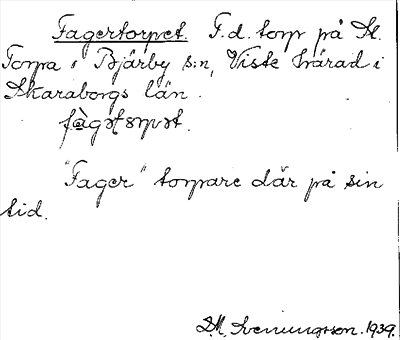 Fagertorpet. F.d. torp på St.
Torpa i Bjärby s:n, Viste härad i
Skaraborgs län.
"Fager" torpare där på sin
tid.
1939.